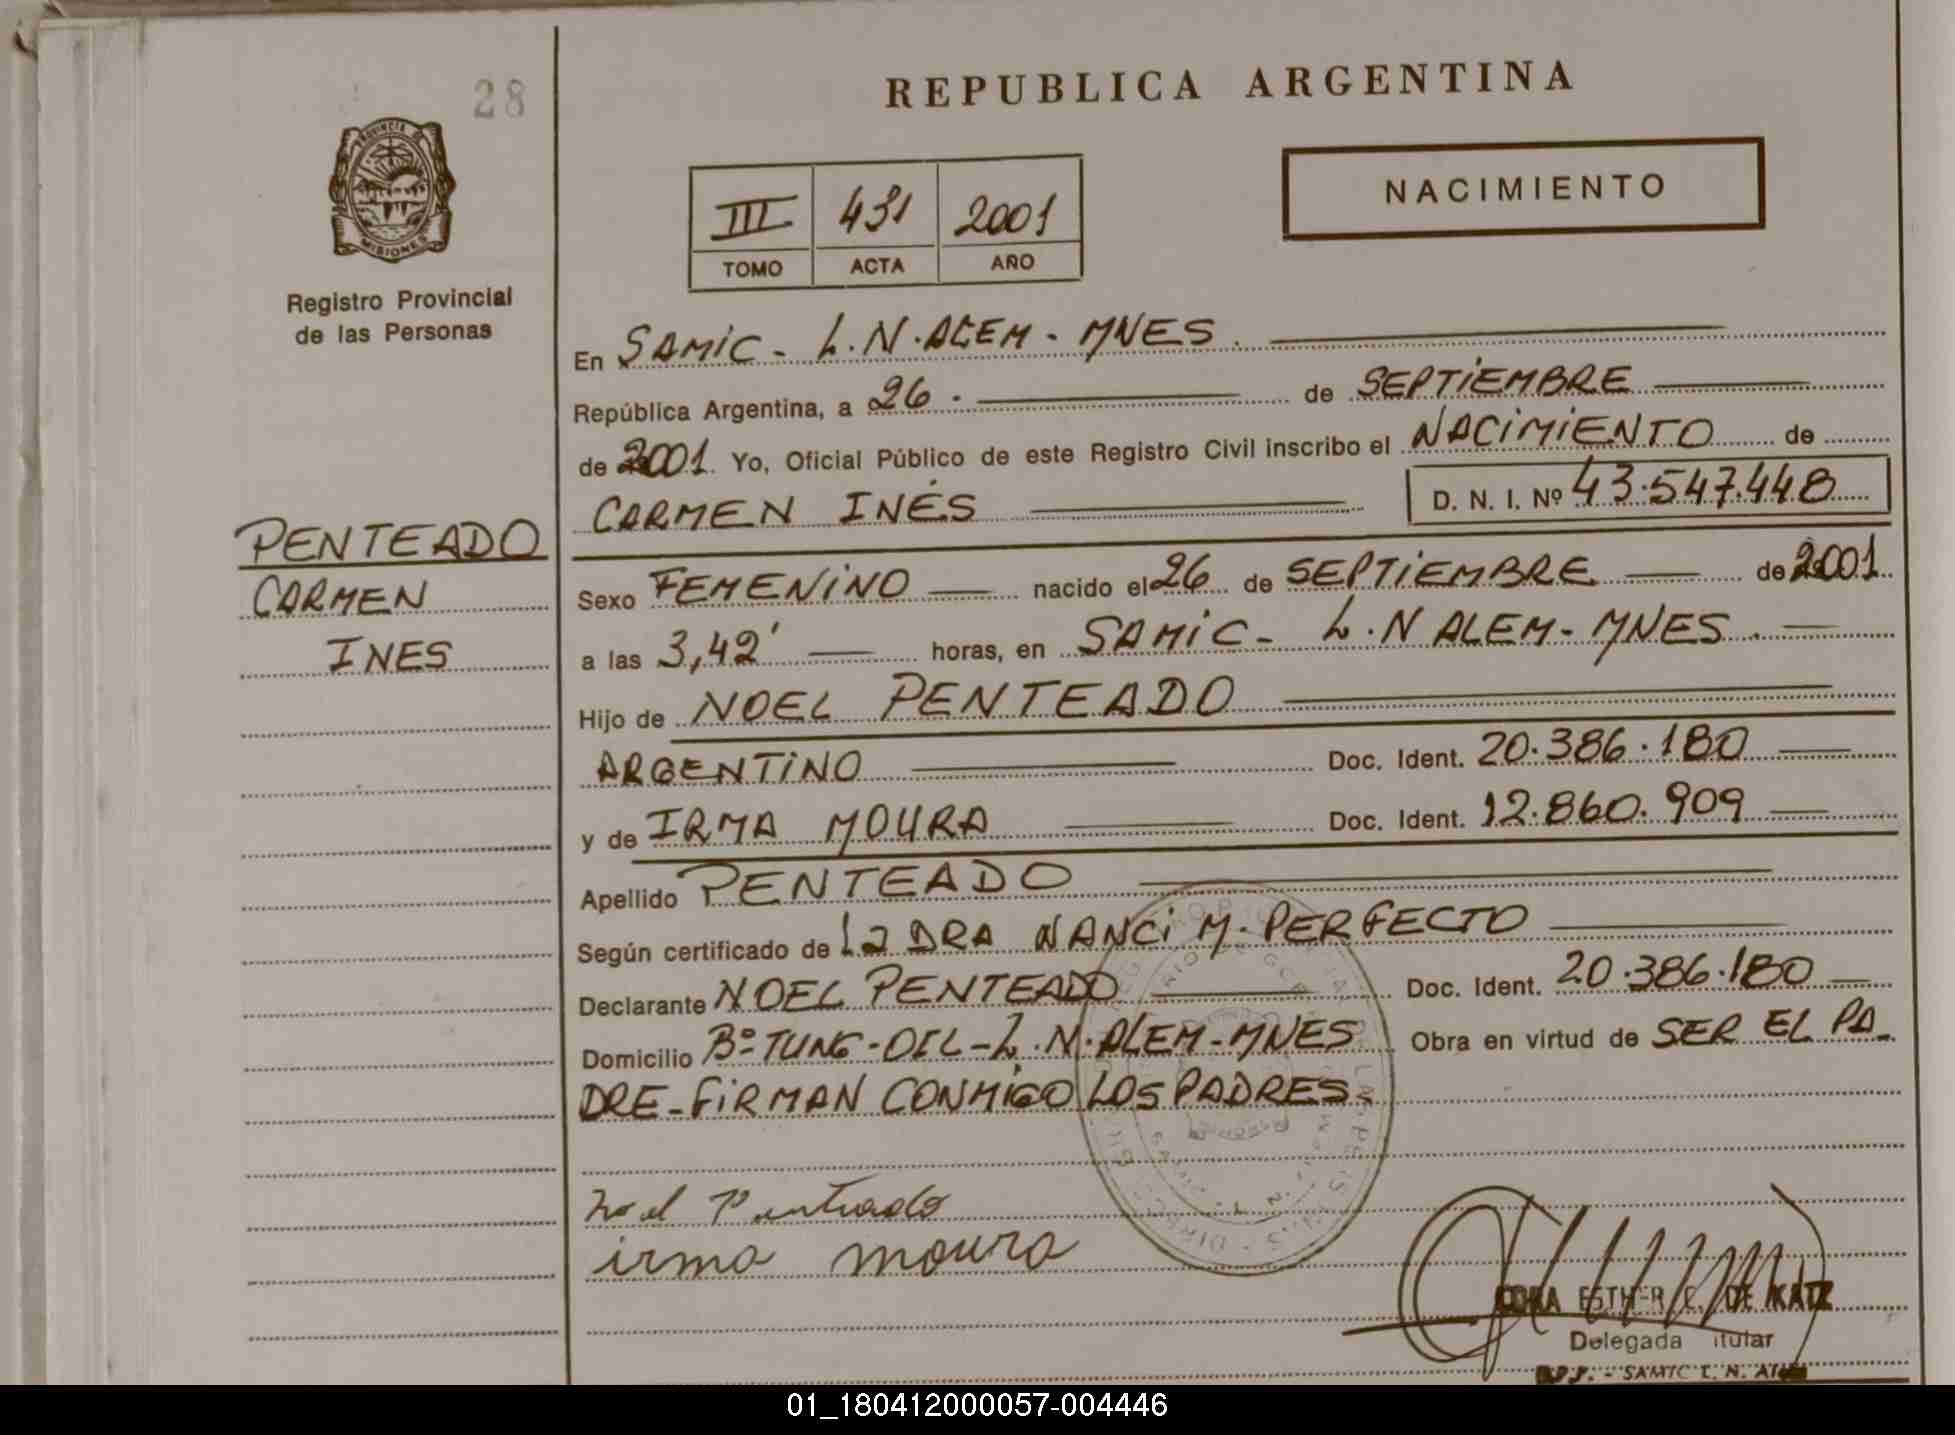 28
REPUBLICA ARGENTINA
PROVINCIA DE
MISIONES
Registro Provincial
de las Personas
III 431 2001
TOMO ACTA AÑO
NACIMIENTO
En SAMIC - L.N.ALEM - MNES.
República Argentina, a 26. de SEPTIEMBRE
de 2001. Yo, Oficial Público de este Registro Civil inscribo el NACIMIENTO de
CARMEN INÉS D. N. I. Nº 43.547.448
PENTEADO
CARMEN
INES
Sexo FEMENINO nacido el 26 de SEPTIEMBRE de 2001
a las 3,42' horas, en SAMIC - L.N ALEM - MNES.
Hijo de NOEL PENTEADO
ARGENTINO Doc. Ident. 20.386.180
y de IRMA MOURA Doc. Ident. 12.860.909
Apellido PENTEADO
Según certificado de la DRA NANCI M. PERFECTO
Declarante NOEL PENTEADO Doc. Ident. 20.386.180
Domicilio Bº TUNG-OIL - L.N.ALEM - MNES Obra en virtud de SER EL PA-
DRE - FIRMAN CONMIGO LOS PADRES.
Noel Penteado
irma moura
ESTHER C. DE KATZ
Delegada Titular
SAMIC L. N. Alem
01_180412000057-004446